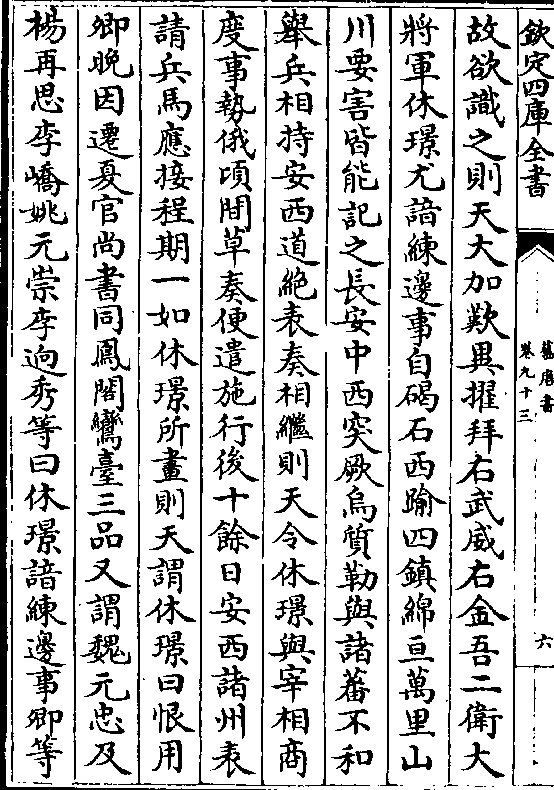 欽定四庫全書
舊唐書
卷九十三
六
故欲識之則天大加歎異擢拜右武威右金吾二衛大
將軍休璟尤諳練邊事自碣石西踰四鎮綿亘萬里山
川要害皆能記之長安中西突厥烏質勒與諸蕃不和
舉兵相持安西道絶表奏相繼則天令休璟與宰相商
度事勢俄頃間草奏便遣施行後十餘日安西諸州表
請兵馬應接程期一如休璟所畫則天謂休璟曰恨用
卿晚因遷夏官尚書同鳳閣鸞臺三品又謂魏元忠及
楊再思李嶠姚元崇李逈秀等曰休璟諳練邊事卿等